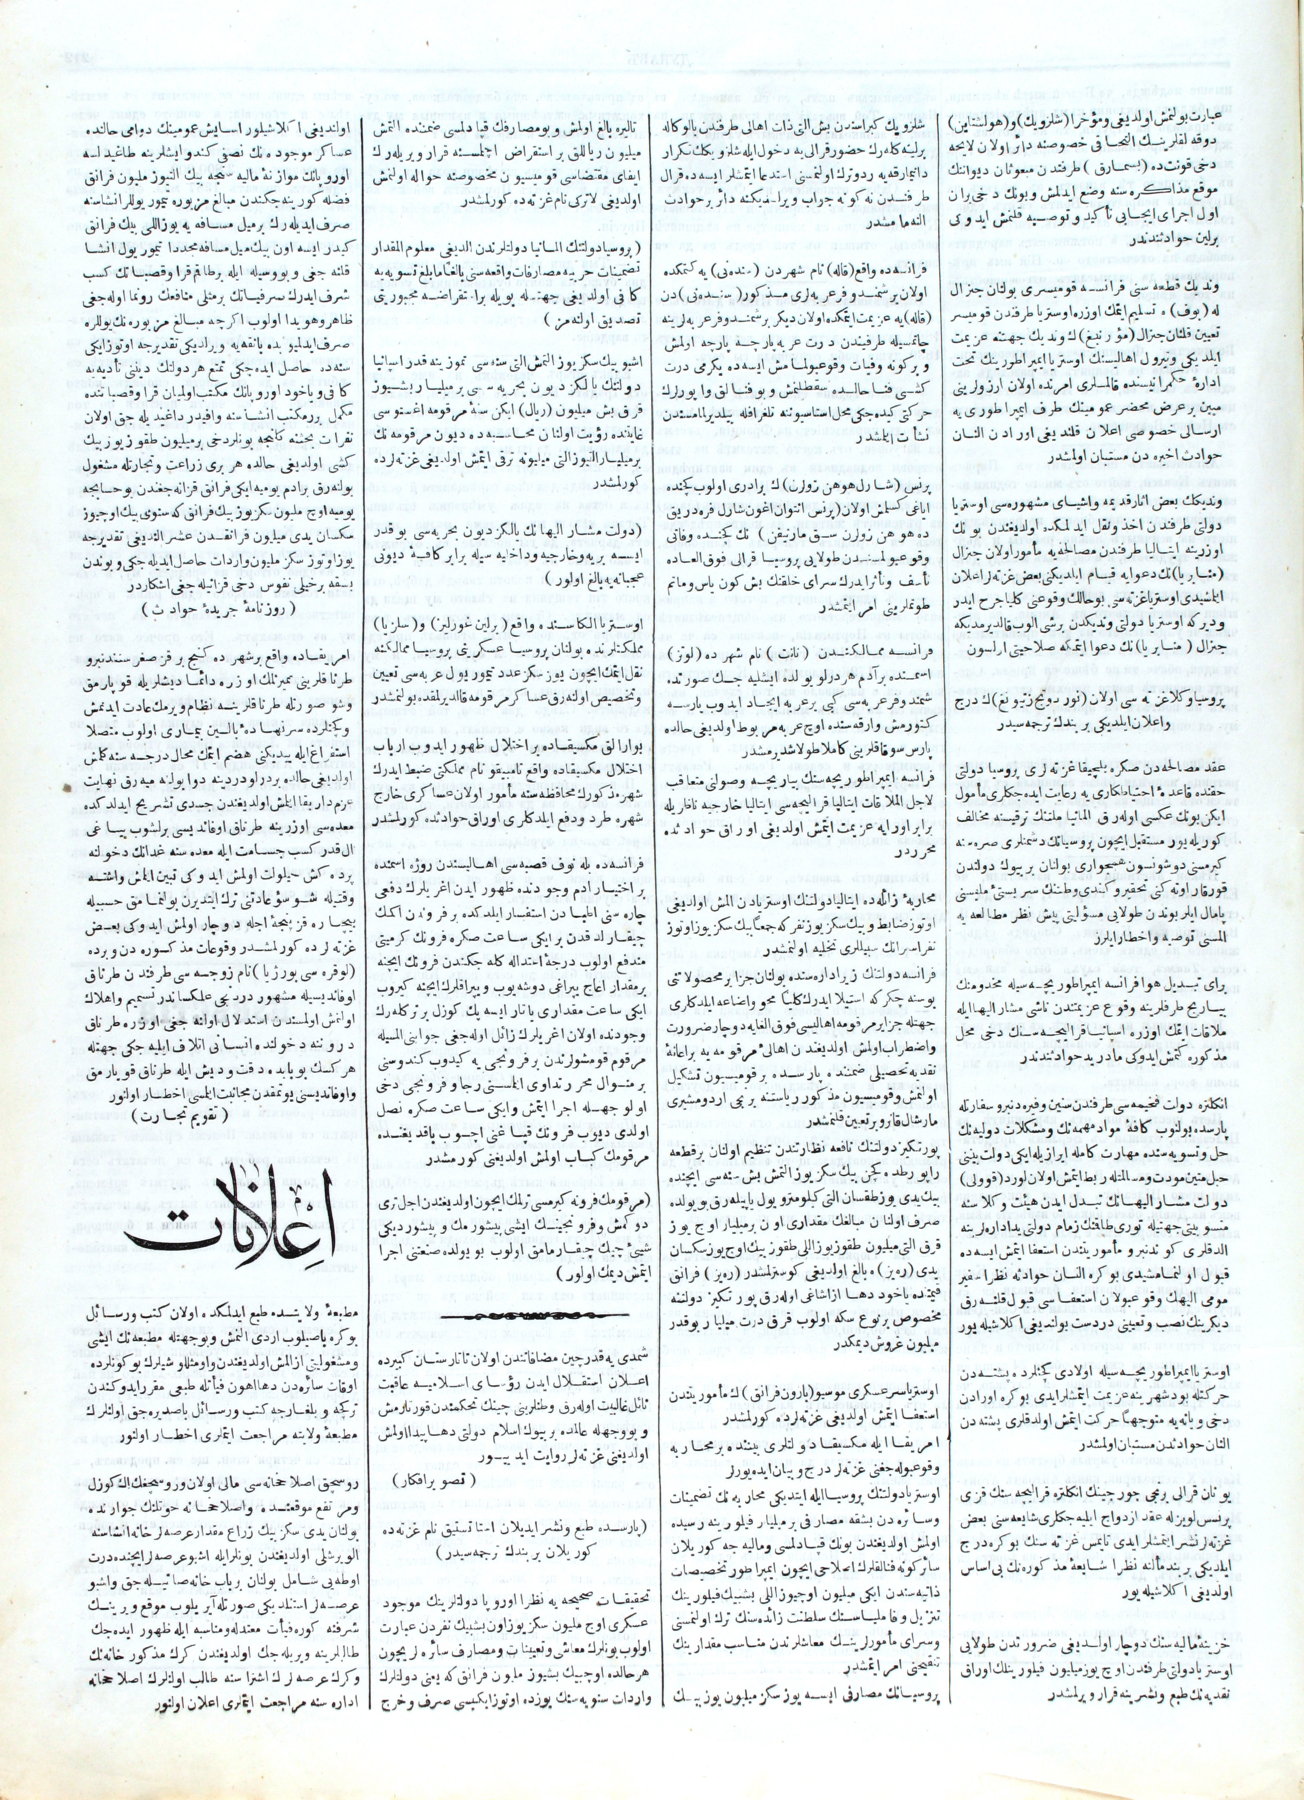 عبارت بولنمش اولدیغی ومؤخرا (شلزویك) و (هولشتاین)
دوقه لقلرینك التحاقی خصوصنه دائر اولان لایحه
دخی قونت ده (بسمارق) طرفندن مبعوثان دیواننك
موقع مذاکره سنه وضع ایدلمش وبونك دخی بران
اول اجرای ایجابی تأکید و توصیه قلنمش ایدوکی
برلین حوادثندندر
وندیك قطعه سنی فرانسه قومیسری بولنان جنرال
تسلیم ایتمك اوزره اوستریا طرفندن قومیسر
تعیین قلنان جنرال
ارسالی خصوصی اعلان قلندیغی اورادن النان
حوادث اخیره دن مستبان اولمشدر
وندیكك بعض اثار قدیمه واشیای مشهوره سی اوستریا
دولتی طرفندن اخذ ونقل ایدلمکده اولدیغندن بونك
اوزرینه ایتالیا طرفندن مصالحه یه مأمور اولان جنرال
(منابریا) نك دعوایه قیام ایلدیکی بعض غزته لر اعلان
ایتمشیدی اوستریا غزته سی بو حالك وقوعنی کلیا جرح ایدر
جنرال (منابریا) نك دعوا ایتمکه صلاحیتی ارلسون
پروسیا وکلا غزته سی اولان (نور دویچ زتیونغ) ك درج
واعلان ایلدیکی بر بندك ترجمه سیدر
عقد مصالحه دن صکره بلجیقا غزته لری پروسیا دولتی
حقنده قاعدۀ احتیاطکاری یه رعایت ایده جکلری مأمول
ایکن بونك عکسی اوله رق المانیا ملتنك ترقیسنه مخالف
المسنی توصیه واخطار ایلرز
برای تبدیل هوا فرانسه ایمپراطوریچه سیله مخدومنك
بیاریج طرفلرینه وقوع عزیمتندن ناشی مشار الیها ایله
ملاقات ایتمك اوزره اسپانیا قرالیچه سنك دخی محل
مذکوره کتمش ایدوکی مادرید حوادثندندر
انکلتره دولت فخیمه سی طرفندن سنین وفیره دنبرو سفارتله
پارسده بولنوب کافۀ مواد مهمه نك ومشکلات دولیه نك
حل وتسویه سنده مهارت کامله ابرازیله ایکی دولت بیننی
حبل متین مودت ومسالمتله ربط ایتمش اولان لورد (قوولی)
دولت مشار الیهانك تبدل ایدن هیئت وکلاسنه
قبول اولنمامشیدی بوکره النان حوادثه نظرا سفیر
مومی الیهك وقوعبولان استعفاسی قبول قلنه رق
دیکرینك نصب وتعیینی دردست بولندیغی اکلاشیله یور
اوستریا ایمپراطوریچه سیله اولادی کچنلرده پشته دن
حرکتله بود شهرینه عزیمت ایتمشلر ایدی بوکره اورادن
دخی ویانه یه متوجها حرکت ایتمش اولدقلری پشته دن
النان حوادثدن مستبان اولمشدر
یونان قرالی برنجی جورجینك انکلتره قرالیچه سنك قزی
پرنسس لویزله عقد ازدواج ایلیه جکلری شایعه سنی بعض
غزته لر نشر ایتمشلر ایدی تایمس غزته سنك بوکره درج
ایلدیکی بر بند مألنه نظرا شایعۀ مذکوره نك بی اساس
اولدیغی اکلاشیله یور
خزینه مالیه سنك دوچار اولدیغی ضرورتدن طولایی
اوستریا دولتی طرفندن اوچ یوز میلیون فیلورینلك اوراق
نقدیه نك طبع ونشرینه قرار ویرلمشدر
شلزویك کبراسندن بش التی ذات اهالی طرفندن بالوکاله
برلینه کله رك حضور قرالی یه دخول ایله شلزویكك تکرار
دانیمارقه یه رد وترك اولنمسنی استدعا ایتمشلر ایسه ده قرال
طرفندن نه کونه جواب ویراندیکنه دائر بر حوادث
النه مامشدر
فرانسه ده واقع (قاله) نام شهردن (سنده نی) یه کتمکده
اولان بر شمندوفر عربه لری مذکور (سنده نی) دن
(قاله) یه عزیمت ایتمکده اولان دیکر بر شمندوفر عربه لرینه
چاتمسیله طرفیندن درت عربه پارچه پارچه اولمش
حرکتی کیده جکی محل استاسیوننه تلغرافله بیلدیرلمامسندن
نشأت ایلمشدر
پرنس (شارل هوهن زولرن) ك برادری اولوب کچنده
نأسف وتأثر ایدرك سرای خلقنك بش کون یاس وماتم
طوتملرینی امر ایتمشدر
فرانسه ممالکندن (نانت) نام شهرده (لوتز)
اسمنده بر آدم هر درلو یولده ایشلیه جك صورتده
شمندوفر عربه سی کبی بر عربه ایجاد ایدوب پارسه
کتورمش وارقه سنده اوچ عربه مربوط اولدیغی حالده
پارس سوقاقلرینی کاملا طولاشدیرمشدر
فرانسه ایمپراطوریچه سنك بیاریجه وصولنی متعاقب
لاجل الملاقات ایتالیا قرالیچه سی ایتالیا خارجیه ناظریله
برابر اورایه عزیمت ایتمش اولدیغی اوراق حوادثده
محرردر
محاربۀ زائله ده ایتالیا دولتنك اوستریادن المش اولدیغی
اوتوز ضابط وبیك سکز یوز نفرکه جمعا بیك سکز یوز اوتوز
نفر اسرانك سبیللری تخلیه اولنمشدر
فرانسه دولتنك زیر اداره سنده بولنان جزایر محصولاتنی
بوسنه چکرکه استیلا ایدرك کلیاً محو واضاعه ایلدکلری
جهتله جزایر مرقومه اهالیسی فوق الغایه دوچار ضرورت
واضطراب اولمش اولدیغندن اهالئ مرقومه یه بر اعانۀ
نقدیه تحصیلی ضمننده پارسده بر قومیسیون تشکیل
اولنمش وقومیسیون مذکور ریاستنه برنجی اردو مشیری
مارشال قانروبر تعیین قلنمشدر
پورتکیز دولتنك نافعه نظارتندن تنظیم اولنان بر قطعه
راپورطده کچن بیك سکز یوز التمش بش سنه سی ایچنده
بیك یدی یوز طقسان التی کیلومترو یول یاپیله رق بو یولده
صرف اولنان مبالغك مقداری اون بر میلیار اوچ یوز
قرق التی میلیون طقوز یوز اللی طقوز بیك اوچ یوز سکسان
یدی (ره یز) ه بالغ اولدیغی کوسترلمشدر (ره یز) فرانق
قیمتنده یاخود دها ازاشاغی اوله رق پورتکیز دولتنه
مخصوص بر نوع سکه اولوب قرق درت میلیار بو قدر
میلیون غروش دیمکدر
اوستریا سر عسکری موسیو (بارون فرانق) ك مأموریتندن
استعفا ایتمش اولدیغی غزته لرده کورلمشدر
امریقا ایله مکسیقا دولتلری بیننده بر محاربه
وقوعبوله جغی غزته لر درج وبیان ایده یورلر
اوستریا دولتنك پروسیا ایله ایتدیکی محاربه نك تضمینات
وسائره دن بشقه مصارفی بر میلیار فیلورینه رسیده
اولمش اولدیغندن بونك قپادلمسی ومالیه جه کوریلان
سائر کونه فنالقلرك اصلاحی ایچون ایمپراطور تخصیصات
ذاتیه سندن ایکی میلیون اوچیوز اللی بشبیك فیلورینك
تنزیل وفامیلیاسنك سلطنت زائده سنك ترك اولنمسنی
وسرای مأمورلرینك معاشلرندن مناسب مقدارینك
تنقیحنی امر ایتمشدر
پروسیانك مصارفی ایسه یوز سکز میلیون یوز بیك
تالیره بالغ اولمش وبو مصارفك قپادلمسی ضمننده التمش
میلیون ریاللق بر استقراض اچلمسنه قرار ویریله رك
ایفای مقتضاسی قومیسیون مخصوصنه حواله اولنمش
اولدیغی لاترکی نام غزته ده کورلمشدر
(پروسیا دولتنك المانیا دولتلرندن الدیغی معلوم المقدار
تضمینات حربیه مصارفات واقعه سنی بالغاً مابلغ تسویه یه
کافی اولدیغی جهتله بویله بر استقراضه مجبوریتی
تصدیق اولنه مز)
اشبو بیك سکز یوز التمش التی سنه سی تموزینه قدر اسپانیا
دولتنك یالکز دیون بحریه سی بر میلیار بشیوز
قرق بش میلیون (ریال) ایکن سنۀ مرقومه اغستوسی
غایتنده رؤیت اولنان محاسبه ده دیون مرقومه نك
بر میلیار التیوز التی میلیونه ترقی ایتمش اولدیغی غزته لرده
کورلمشدر
(دولت مشار الیهانك یالکز دیون بحریه سی بو قدر
ایسه بریه وخارجیه وداخلیه سیله برابر کافۀ دیونی
عجبا نه یه بالغ اولور)
اوستریا الکاسنده واقع (برلین غورلین) و (سلزیا)
مملکتلرنده بولنان پروسیا عسکرینی پروسیا ممالکنه
نقل ایتمك ایچون یوز سکز عدد تیمور یول عربه سی تعیین
وتخصیص اولنه رق عساکر مرقومه قالدیریلمقده بولنمشدر
بو ارالق مکسیقاده بر اختلال ظهور ایدوب ارباب
اختلال مکسیقاده واقع تامپیقو نام مملکتی ضبط ایدرك
شهر مذکورك محافظه سنه مأمور اولان عساکری خارج
شهره طرد ودفع ایلدکلری اوراق حوادثده کورلمشدر
فرانسه ده بله نوف قصبه سی اهالیسندن روزه اسمنده
بر اختیار آدم وجودنده ظهور ایدن اغریلرك دفعی
چاره سنی اطبادن استفسار ایلدکده بر فروندن اکمك
چیقارلدقدن بر ایکی ساعت صکره فرونك کرمیتی
مندفع اولوب درجۀ اعتداله کله جکندن فرونك ایچنه
بر مقدار اغاج یپراغی دوشه یوب ویپراقلرك ایچنه کیروب
ایکی ساعت مقداری یاتار ایسه پك کوزل بر ترکله رك
وجودنده اولان اغریلرك زائل اوله جغی جوابنی المسیله
مرقوم قومشولرندن بر فرونجی یه کیدوب کندوسنی
بر منوال محرر تداوی ایلمسنی رجا وفرونجی دخی
اولوجهله اجرا ایتمش وایکی ساعت صکره نصل
اولدی دیوب فرونك قپاغنی اچوب باقدیغنده
مرقومك کباب اولمش اولدیغنی کورمشدر
(مرقومك فرونه کیرمسی ترلمك ایچون اولدیغندن اجل تری
دوکمش وفرونجینك ایشی پیشورمك وپیشوردیکی
شیئی چیك چیقارمامق اولوب بو یولده صنعتنی اجرا
ایتمش دیمك اولور)
شمدی یه قدر چین مضافاتندن اولان تاتارستان کبیرده
اعلان استقلال ایدن رؤسای اسلامیه عاقبت
نائل غالبیت اوله رق وطنلرینی چینك تحکمندن قورتارمش
وبو وجهله عالمده بر بیوك اسلام دولتی دها پیدا اولمش
اولدیغی غزته لر روایت ایدییور
(تصویر افکار)
(پارسده طبع ونشر ایدیلان استاتستیق نام غزته ده
کوریلان بر بندك ترجمه سیدر)
تحقیقات صحیحه یه نظرا اوروپا دولتلرینك موجود
عسکری اوچ ملیون سکز یوز اون بشبیك نفردن عبارت
اولوب بونلرك معاش وتعیینات ومصارف سائره لریچون
هر حالده اوچ بیك بشیوز ملیون فرانق که یعنی دولتلرك
واردات سنویه سنك یوزده اوتوز ایکیسی صرف وخرج
اولندیغی اکلاشیلور اسایش عمومینك دوامی حالنده
عساکر موجوده نك نصفی کندو ایشلرینه طاغیدلسه
اوروپانك موازنۀ مالیه سنجه بیك التیوز ملیون فرانق
فضله کورینه جکندن مبالغ مزبوره تیمور یوللر انشاسنه
صرف ایدیله رك بر میل مسافه یه یوز اللی بیك فرانق
کیدر ایسه اون بیك میل مسافه مجددا تیمور یول انشا
قلنه جغی وبو وسیله ایله بر طاقم قرا وقصباتك کسب
شرف ایدرك صرفیاتك بر مثلی منافعك رونما اوله جغی
ظاهر وهویدا اولوب اکرچه مبالغ مزبوره نك یوللره
کافی ویاخود اوروپانك مکتب اولمیان قرا وقصباتنده
مکمل بررمکتب انشاسنه وافیدر
کشی اولدیغی حالده هر بری زراعت وتجارتله مشغول
بولنه رق بر آدم یومیه ایکی فرانق قزانه جغندن بو حسابجه
یومیه اوچ ملیون سکز یوز بیك فرانق که سنوی بیك اوچیوز
سکسان یدی میلیون فرانقدن عشر النه دیغی تقدیرجه
یوز اوتوز سکز ملیون واردات حاصل ایدیله جکی وبوندن
بشقه برخیلی نفوس دخی قزانیله جغی اشکاردر
(روزنامۀ جریدۀ حوادث)
امریقاده واقع بر شهرده کنج بر قز صغر سنندنبرو
طرناقلرینی
وکچنلرده سر نهاده بالین بیماری اولوب متصلا
استفراغ ایله ییدیکنی هضم ایتمك محال درجه سنه کلمش
اولدیغی حالده بردرلو دردینه دوا بولنه میه رق نهایت
عزم دار بقا ایلمش اولدیغندن جسدی تشریح ایدلدکده
معده سی اوزرینه طرناق اوفاندیسی برلشوب پیاغی
ال قدر کسب جسامت ایله معده سنه غدانك دخولنه
پرده کش حیلولت اولمش ایدوکی تبین ایلمش واشته
وقتیله شو سؤ عادتنی ترك ایتدیرن بولنمامق حسبیله
بیچاره قز پنجۀ اجله دوچار اولمش ایدوکی بعض
غزته لرده کورلمشدر وقوعات مذکوره دن وبرده
(لوقره سی بورژیا) نام زوجه سی طرفندن طرناق
اوفاندیسیله مشهور دردبکی علکساندر تسمیم واهلاك
اولنمش اولمسندن استدلال اولنه جغی اوزره طرناق
دروننه دخولنده انسانی اتلاف ایلیه جکی جهتله
هر کسك بو بابده دقت ودیش ایله طرناق قوپارمق
واوفاندیسنی یوتمقدن مجانبت ایلمسی اخطار اولنور
(تقویم تجارت)
اعلانات
مطبعۀ ولایتده طبع ایدلمکده اولان کتب ورسائل
بوکره یاپیلوب اردی النمش وبو جهتله مطبعه نك ایشی
ومشغولیتی ازالمش اولدیغندن واو مثللو شیلرك بوکونلرده
اوقات سائره دن دها اهون فیئاتله طبعی مقرر ایدوکندن
ترکجه وبلغارجه کتب ورسائل باصدیره جق اولنلرك
مطبعۀ ولایته مراجعت ایتملری اخطار اولنور
روسچق اصلاحخانه سی مالی اولان وروسچغك اك کوزل
ومرتفع موقعنده واصلاحخانه حوننك جوارنده
بولنان یدی سکز بیك زراع مقدار عرصه لر خانه انشاسنه
الویرشلی اولدیغندن بونلر ایله اشبو عرصه لر ایچنده درت
اوطه یی شامل بولنان بر باب خانه صاتیله جق واشبو
عرصه لر استنلدیکی صورتله آیریلوب موقع ویرینك
شرفنه کوره فیأت معتدله ومناسبه ایله ظهور ایده جك
طالبلرینه ویریله جك اولدیغندن کرك مذکور خانه نك
وکرك عرصه لرك اشتراسنه طالب اولانلرك اصلاحخانه
اداره سنه مراجعت ایتملری اعلان اولنور